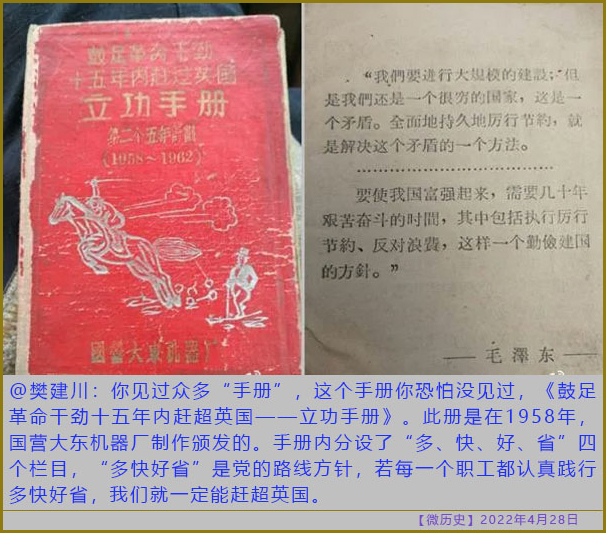 鼓足革命干劲
十五年内赶过英國
立功手册
第二个五年計劃
(1958~1962)
國营大東机器厂
“我們要进行大規模的建設；但
是我們还是一个很穷的国家，这是一
个矛盾。全面地持久地厉行节約，就
是解决这个矛盾的一个方法。
………………………………
要使我国富强起来，需要几十年
艰苦奋斗的时間，其中包括执行厉行
节約、反对浪費，这样一个勤儉建国
的方針。”
——毛澤东——
@樊建川：你见过众多“手册”，这个手册你恐怕没见过，《鼓足
革命干劲十五年内赶超英国——立功手册》。此册是在1958年，
国营大东机器厂制作颁发的。手册内分设了“多、快、好、省”四
个栏目，“多快好省”是党的路线方针，若每一个职工都认真践行
多快好省，我们就一定能赶超英国。
【微历史】2022年4月28日